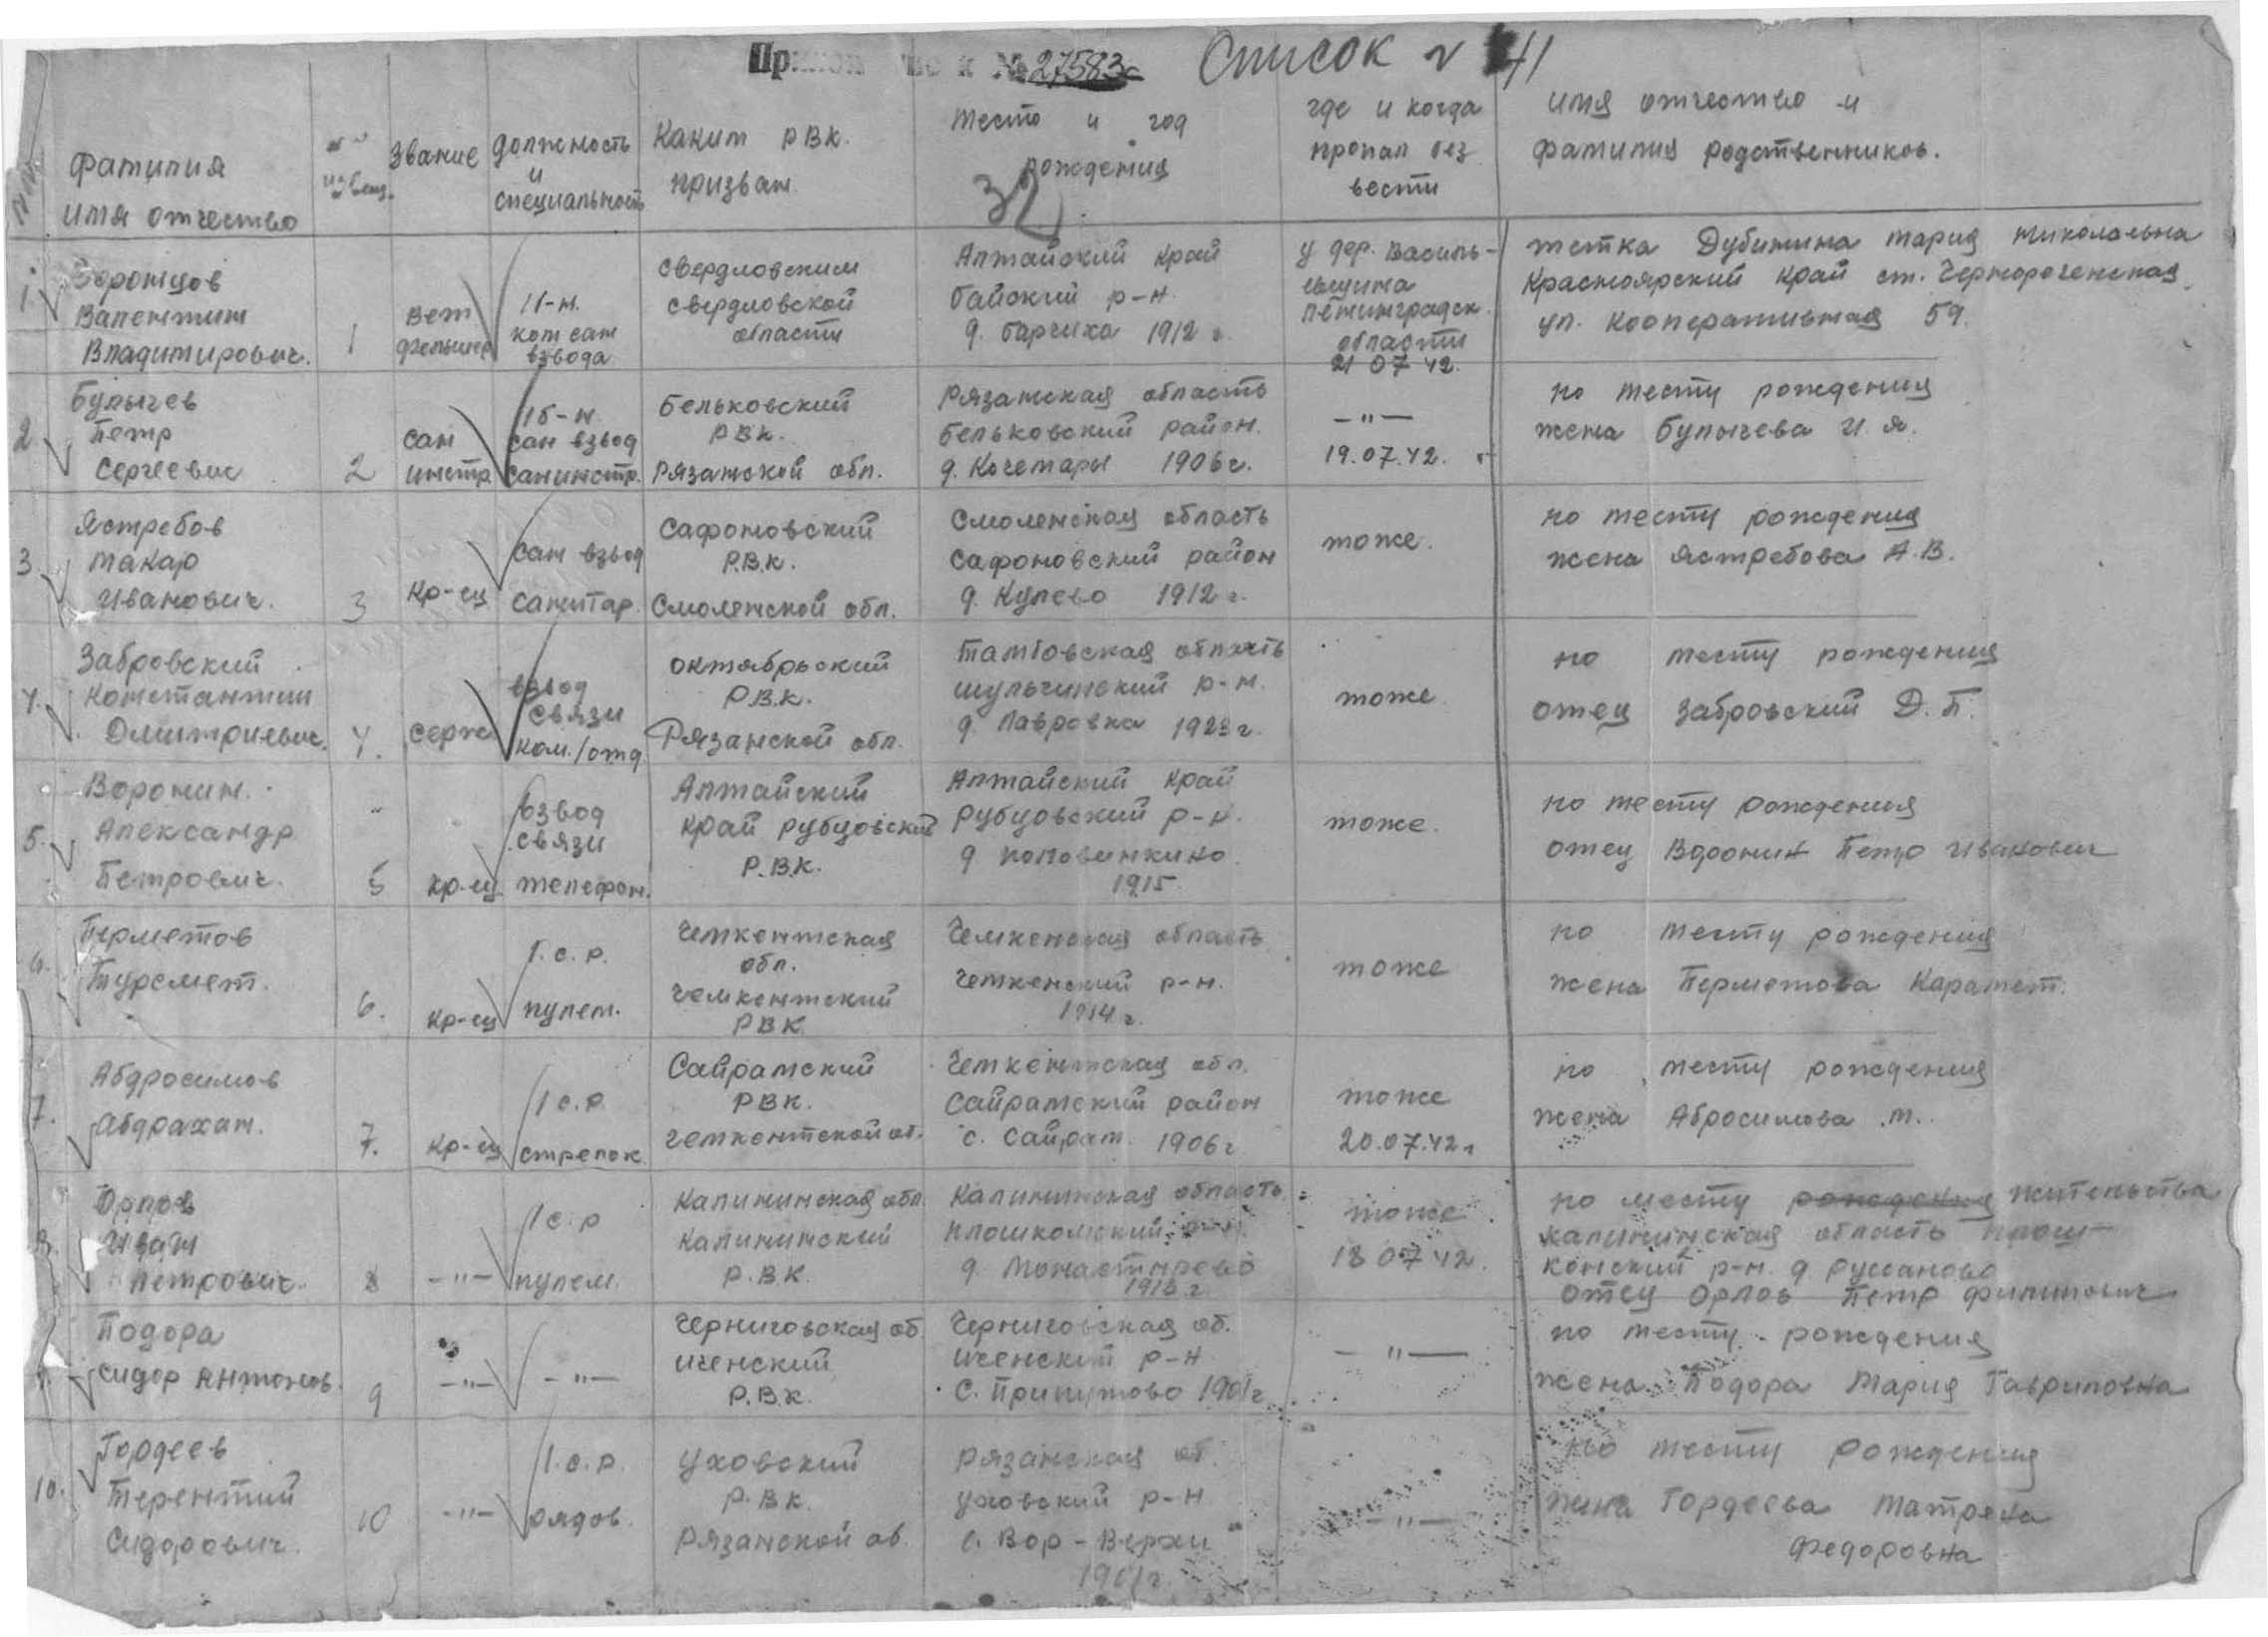 № 27583с Список № 41
№ извещ.
Фамилия
имя отчество
Звание
должность
и
специальность
Каким РВК.
призван
место и год
рождения
32
где и когда
пропал без
вести
имя отчество и
фамилия родственников.
1
Валентин
Владимирович.
1
вет
фельдшер
1б-н.
ком сан
взвода
Свердловским
свердловской
области
Алтайский край
Бийский р-н.
1912 г
у дер. Василь-
евщина
ленинградск.
области
21 07 42.
тетка Дубинина мария николаевна
Красноярский край ст.
ул. Кооперативная 59.
2
Булычев
Петр
Сергеевич
2
сан
инстр.
1б-н.
сан взвод
санинстр.
Бельковский
РВК.
Рязанской обл.
Рязанская область
бельковский район.
д. Кочемары 1906г.
–"–
19.07.42.
по месту рождения
жена булычева И. Я.
3
Ястребов
макар
Иванович.
3
кр-ец
сан взвод
санитар.
Сафоновский
Р.В.К.
Смоленской обл.
Смоленская область
сафоновский район
д. Кулево 1912 г.
тоже.
по месту рождения
жена Ястребова А.В.
4.
Забровский
Константин
Дмитриевич.
4.
серж
взвод
связи
ком./отд
октябрьский
Р.В.К.
Рязанской обл.
Тамбовская область
шульгинский р-н.
д. Лавровка
тоже.
по месту рождения
отец Забровский Д. П.
5.
Воронин.
Александр
Петрович.
5
кр-ец
взвод
связи
телефон.
Алтайский
край рубцовский
Р.В.К.
Алтайский край
рубцовский р-н.
д половинкино.
1915.
тоже.
по месту рождения
отец Воронин Петр Иванович
6.
Перметов
Турсмет.
6.
кр-ец
1. с. р.
пулем.
Чемкентская
обл.
чемкентский
РВК
Чемкенская область
чемкенский р-н.
1914 г.
тоже
по месту рождения
жена Перметова Карамет.
7.
Абдросимов
Абдрахан.
7.
кр-ец
1 с.р.
стрелок
Сайрамский
РВК.
чемкентской об.
Чемкентская обл.
Сайрамский район
с. Сайрам. 1906г
тоже
20.07.42г
по месту рождения
жена Абросимова М.
8.
Орлов
Иван
Петрович.
8
–"–
1 с.р
пулем.
Калининская обл.
Калининский
Р.В.К.
Калининская область
плошкомский р-н.
д. Монастырево
тоже
18 07 42.
по месту рождения жительства
калининская область плош-
комский р-н. д. руссаново
отец Орлов Петр филиппович
Подора
Сидор Антонов.
9
–"–
–"–
Черниговская об.
иченский
Р.В.К.
Черниговская об.
иченский р-н
1901г
–"–
по месту рождения
жена Подора Мария Гавриловна
10.
Гордеев
Терентий
Сидорович.
10
–"–
1.с.р.
рядов.
Уховский
Р.В.К.
Рязанской об.
рязанская об.
уховский р-н
с. Вор-Верхи
1901г.
–"–
по месту рождения
жена Гордеева Матрена
Федоровна